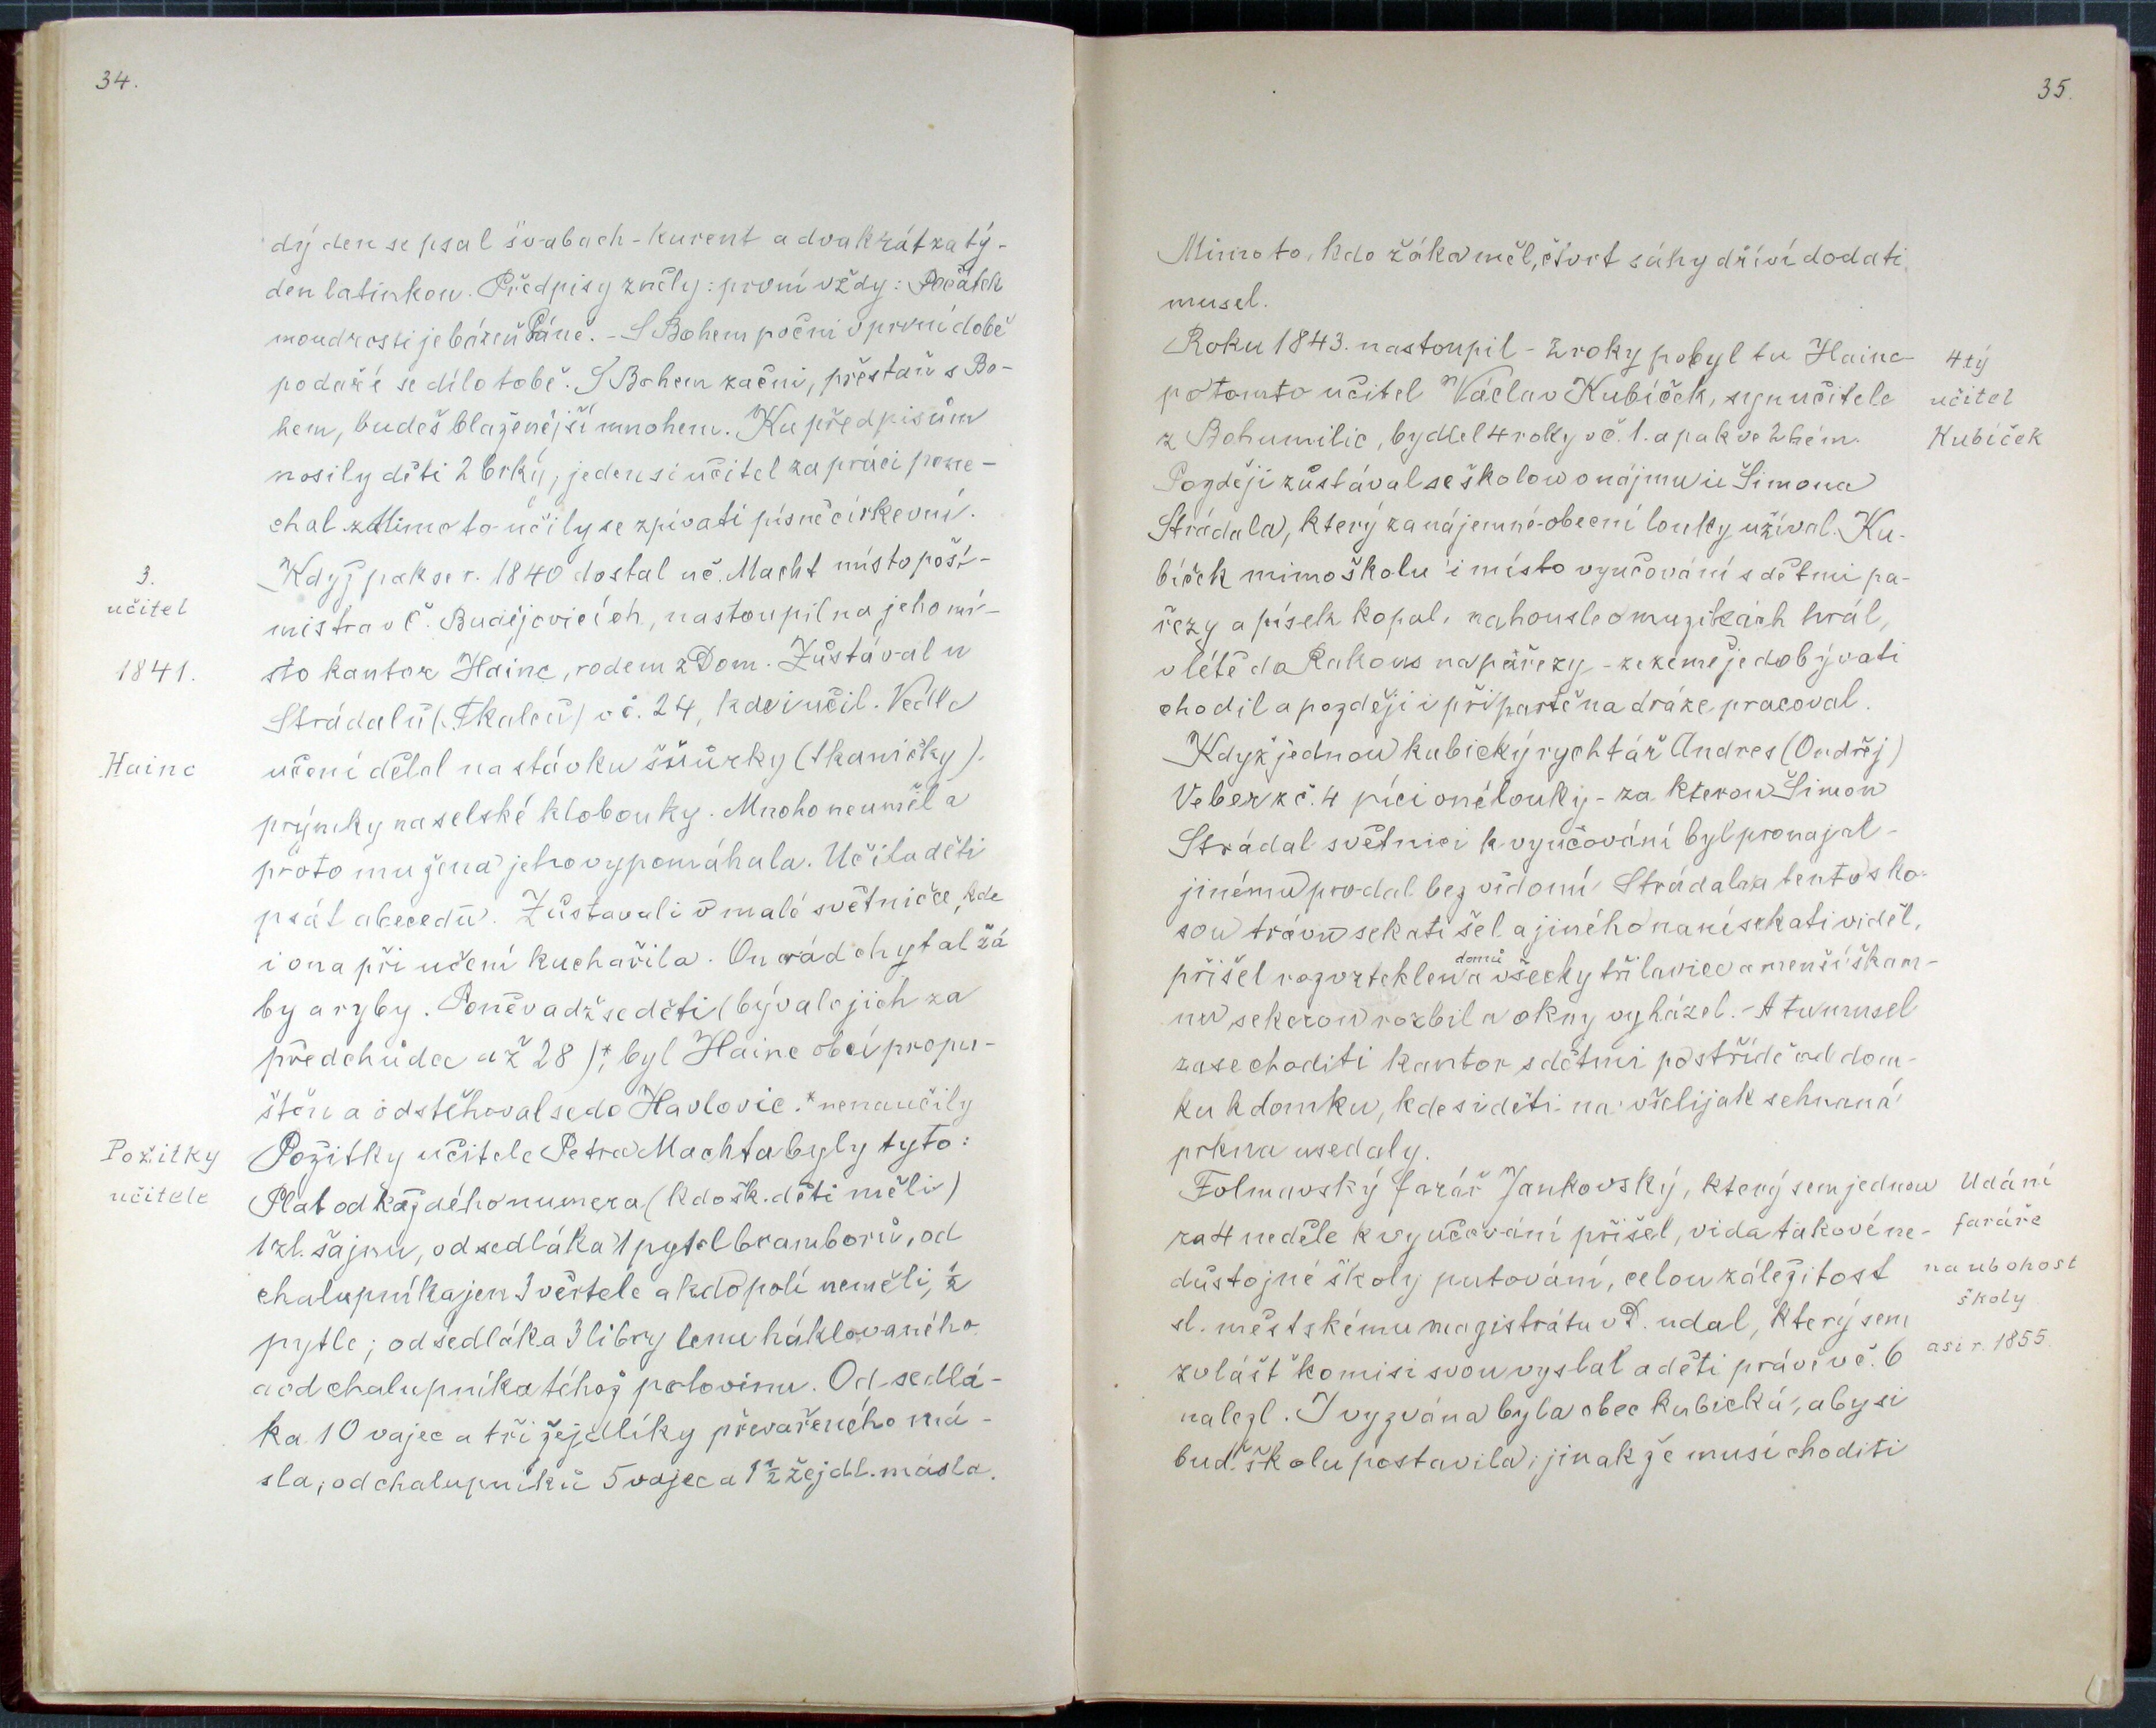 34.
dý den se psal švabach-kurent a dvakrát za tý-
den latinkou. Předpisy zněly: první vždy: Počátek
moudrosti je bázeň Páně. - S Bohem počni v první době
podaří se dílo tobě. S Bohem začni, přestaň s Bo-
hem, budeš blaženější mnohem. Ku předpisům
nosily děti 2 brky, jeden si učitel za práci pone-
chal. Mimo to učily se zpívati písně církevní.
Když pak se r. 1840 dostal uč. Macht místo poši-
3.
učitel
mistra v Č. Budějovicích, nastoupil na jeho mí-
1841.
sto kantor Hainc, rodem z Dom. Zůstával u
Strádalů (Tkalců) v č. 24, kde i učil. Vedle
Hainc
učení dělal na stávku šňůrky (tkaničky).
prýmky na selské klobouky. Mnoho neuměl a
proto mu žena jeho vypomáhala. Učila děti
psát abecedu. Zůstavali v malé světničce, kde
i ona při učení kuchařila. On rád chytal žá
by a ryby. Poněvadž se děti (bývalo jich za
předchůdce až 28)*, byl Hainc obcí propu-
štěn a odstěhoval se do Havlovic. *nenaučily
Požitky
učitele
Požitky učitele Petra Machta byly tyto:
Plat od každého numera (kdo šk. děti měli)
1 zl. šajnu, od sedláka 1 pytel bramborů, od
chalupníka jen 3 věrtele a kdo polí neměli, ½
pytle; od sedláka 3 libry lenu háklovaného
a od chalupníka téhož polovinu. Od sedlá-
ka 10 vajec a tři žejdlíky převařeného má-
sla, od chalupníků 5 vajec a 1½ žejdl. másla.
35.
Mimo to, kdo žáka měl, čtvrt sáhy dříví dodati
musel.
Roku 1843. nastoupil - 2 roky pobyl tu Hainc -
po tomto učitel Václav Kubíček, syn učitele
z Bohumilic, bydlel 4 roky v č. 1. a pak ve 2hém.
4tý
učitel
Kubíček
Později zůstával se školou v nájmu u Šimona
Strádala, který za nájemné obecní louky užíval. Ku-
bíček mimo školu i místo vyučování s dětmi pa-
řezy a písek kopal, na housle o muzikách hrál,
v létě do Rakous na pařezy - ze země je dobývati
chodil a později i při partě na dráze pracoval.
Když jednou kubický rychtář Andres (Ondřej)
Veber z č. 4 píci oné louky - za kterou Šimon
Strádal světnici k vyučování byl pronajal -
jinému prodal bez vědomí Strádala a tento s ko-
sou trávu sekati šel a jiného na ní sekati viděl,
přišel rozvzteklen domů a všecky tři lavice a menší škam-
nu sekerou rozbil a okny vyházel. - A tu musel
zase choditi kantor s dětmi po střídě od dom-
ku k domku, kde si děti na všelijak sehnaná
prkna usedaly.
Folmavský farář Jankovský, který sem jednou
za 4 neděle k vyučování přišel, vida takové ne-
důstojné školy putování, celou záležitost
sl. městskému magistrátu v D. udal, který sem
zvlášť komisi svou vyslal a děti právě v č. 6
nalezl. I vyzvána byla obec kubická, aby si
buď školu postavila, jinak že musí choditi
Udání
faráře
na ubohost
školy
asi r. 1855.